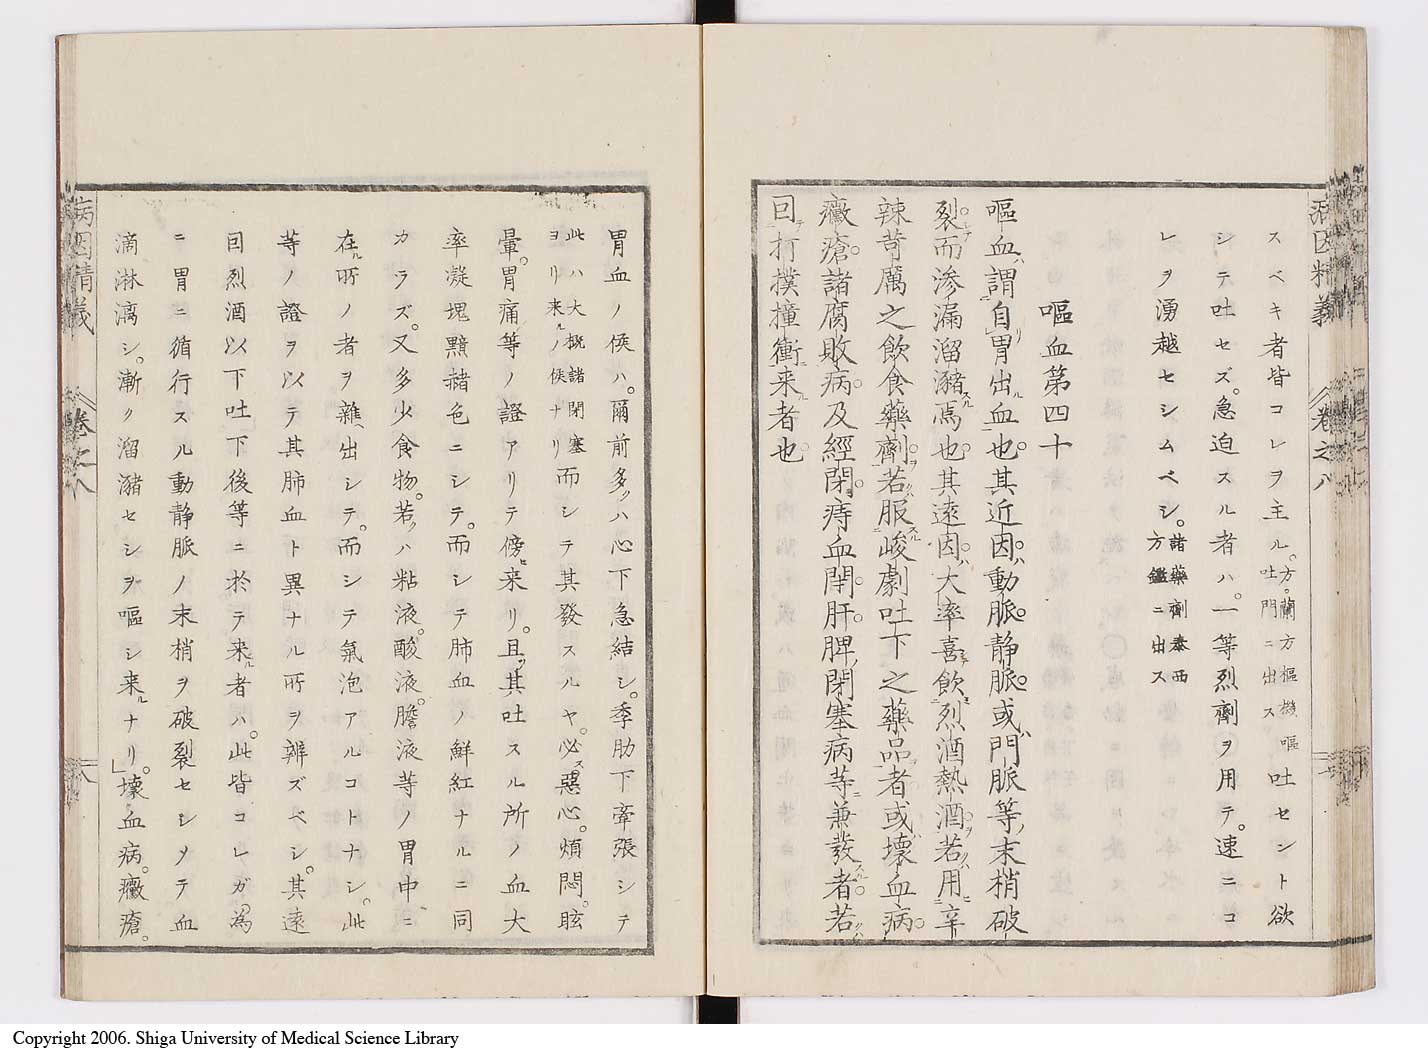 スベキ者皆コレヲ主ル。方蘭方樞機嘔吐門ニ出スス吐セント欲
シテ吐セズ。急迫スル者ハ。一等烈劑ヲ用テ。速ニコ
レヲ湧越セシムベシ。諸藥劑泰西方鑑ニ出ス
嘔血第四十
嘔血ハ謂自リ胃出ル血ヲ也。其近因ハ動脈静脈。或ハ門脈等ノ末梢破
裂而滲漏溜瀦スル焉也。其遠因ハ大率喜飲烈酒熱酒。若クハ用辛
辣苛厲之飲食藥劑ヲ。若クハ服スル峻劇吐下之藥品ヲ者。或壊血病。
黴瘡。諸腐敗病。及經閉。痔血閉。肝脾ノ閉塞病等ニ兼發スル者。若クハ
因テ打撲撞衝ニ来ル者也。
胃血ノ候ハ。爾前多クハ心下急結シ。季肋下牽張シテ
此ハ大概諸閉塞ヨリ来ルノ候ナリ而シテ其發スルヤ。必ス惡心。煩悶。眩
暈。胃痛等ノ證アリテ傍ヒ来リ。且ツ其吐スル所ノ血大
率凝塊黯赭色ニシテ。而シテ肺血ノ鮮紅ナルニ同
カラズ。又多少食物。若クハ粘液。酸液。膽液等ノ胃中ニ
在ル所ノ者ヲ雜ヘ出シテ。而シテ氣泡アルコトナシ。此
等ノ證ヲ以テ其肺血ト異ナル所ヲ辨ズベシ。其遠
因烈酒以下吐下後等ニ於テ来ル者ハ。此皆コレガ為
ニ胃ニ循行スル動静脈ノ末梢ヲ破裂セシメテ血
滴淋漓シ。漸ク溜瀦セシヲ嘔シ来ルナリ。」壊血病。黴瘡。
病因精義
巻之八
八
病因精義
巻之八
七
Copyright 2006. Shiga University of Medical Science Library